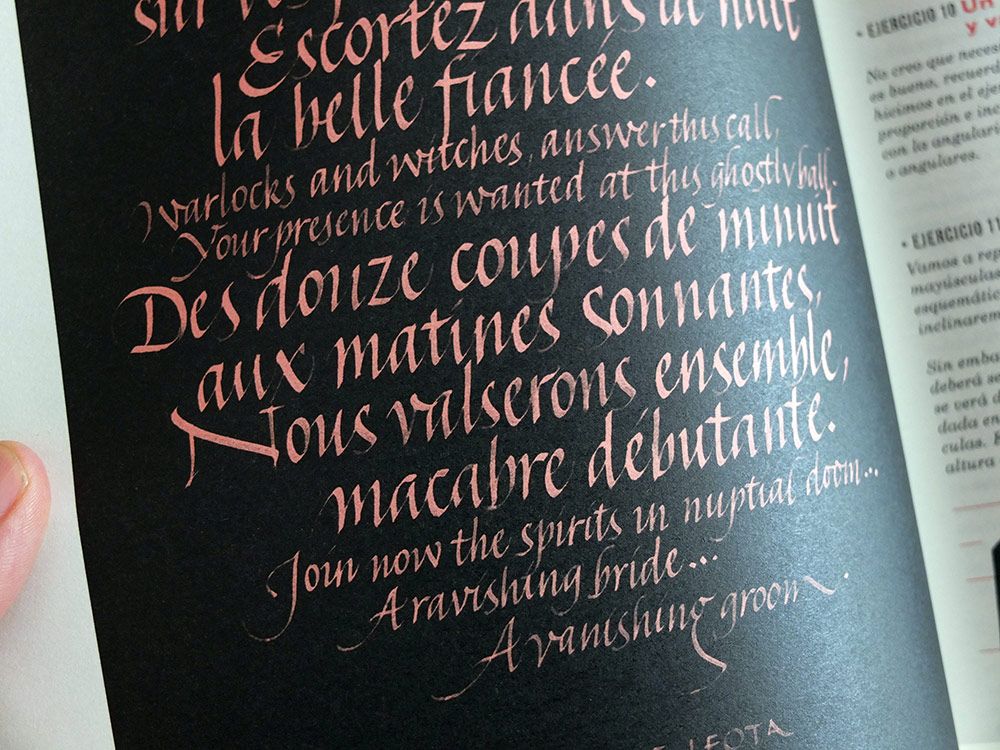 Escortez dans la nuit
la belle fiancée.
Warlocks and witches, answer this call,
Your presence is wanted at this ghostly ball.
Des douze coupes de minuit
aux matines sonnantes,
Nous valserons ensemble,
macabre débutante.
Join now the spirits in nuptial doom...
A ravishing bride...
A vanishing groom.
LEOTA
• EJERCICIO 10
y v
No creo que neces
es bueno, recuerd
hicimos en el eje
proporción e inc
con la angulari
o angulares.
• EJERCICIO 11
Vamos a rep
mayúsculas
esquemátic
inclinarem
Sin emba
deberá s
se verá d
dada en
culas.
altura